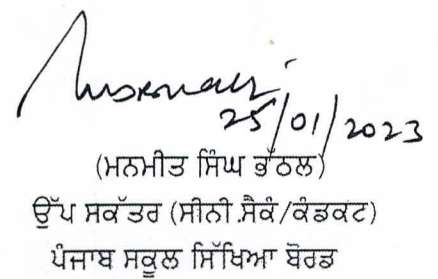 25/01/2023
(ਮਨਮੀਤ ਸਿੰਘ ਭੱਠਲ)
ਉੱਪ ਸਕੱਤਰ (ਸੀਨੀ.ਸੈਕੰ/ਕੰਡਕਟ)
ਪੰਜਾਬ ਸਕੂਲ ਸਿੱਖਿਆ ਬੋਰਡ